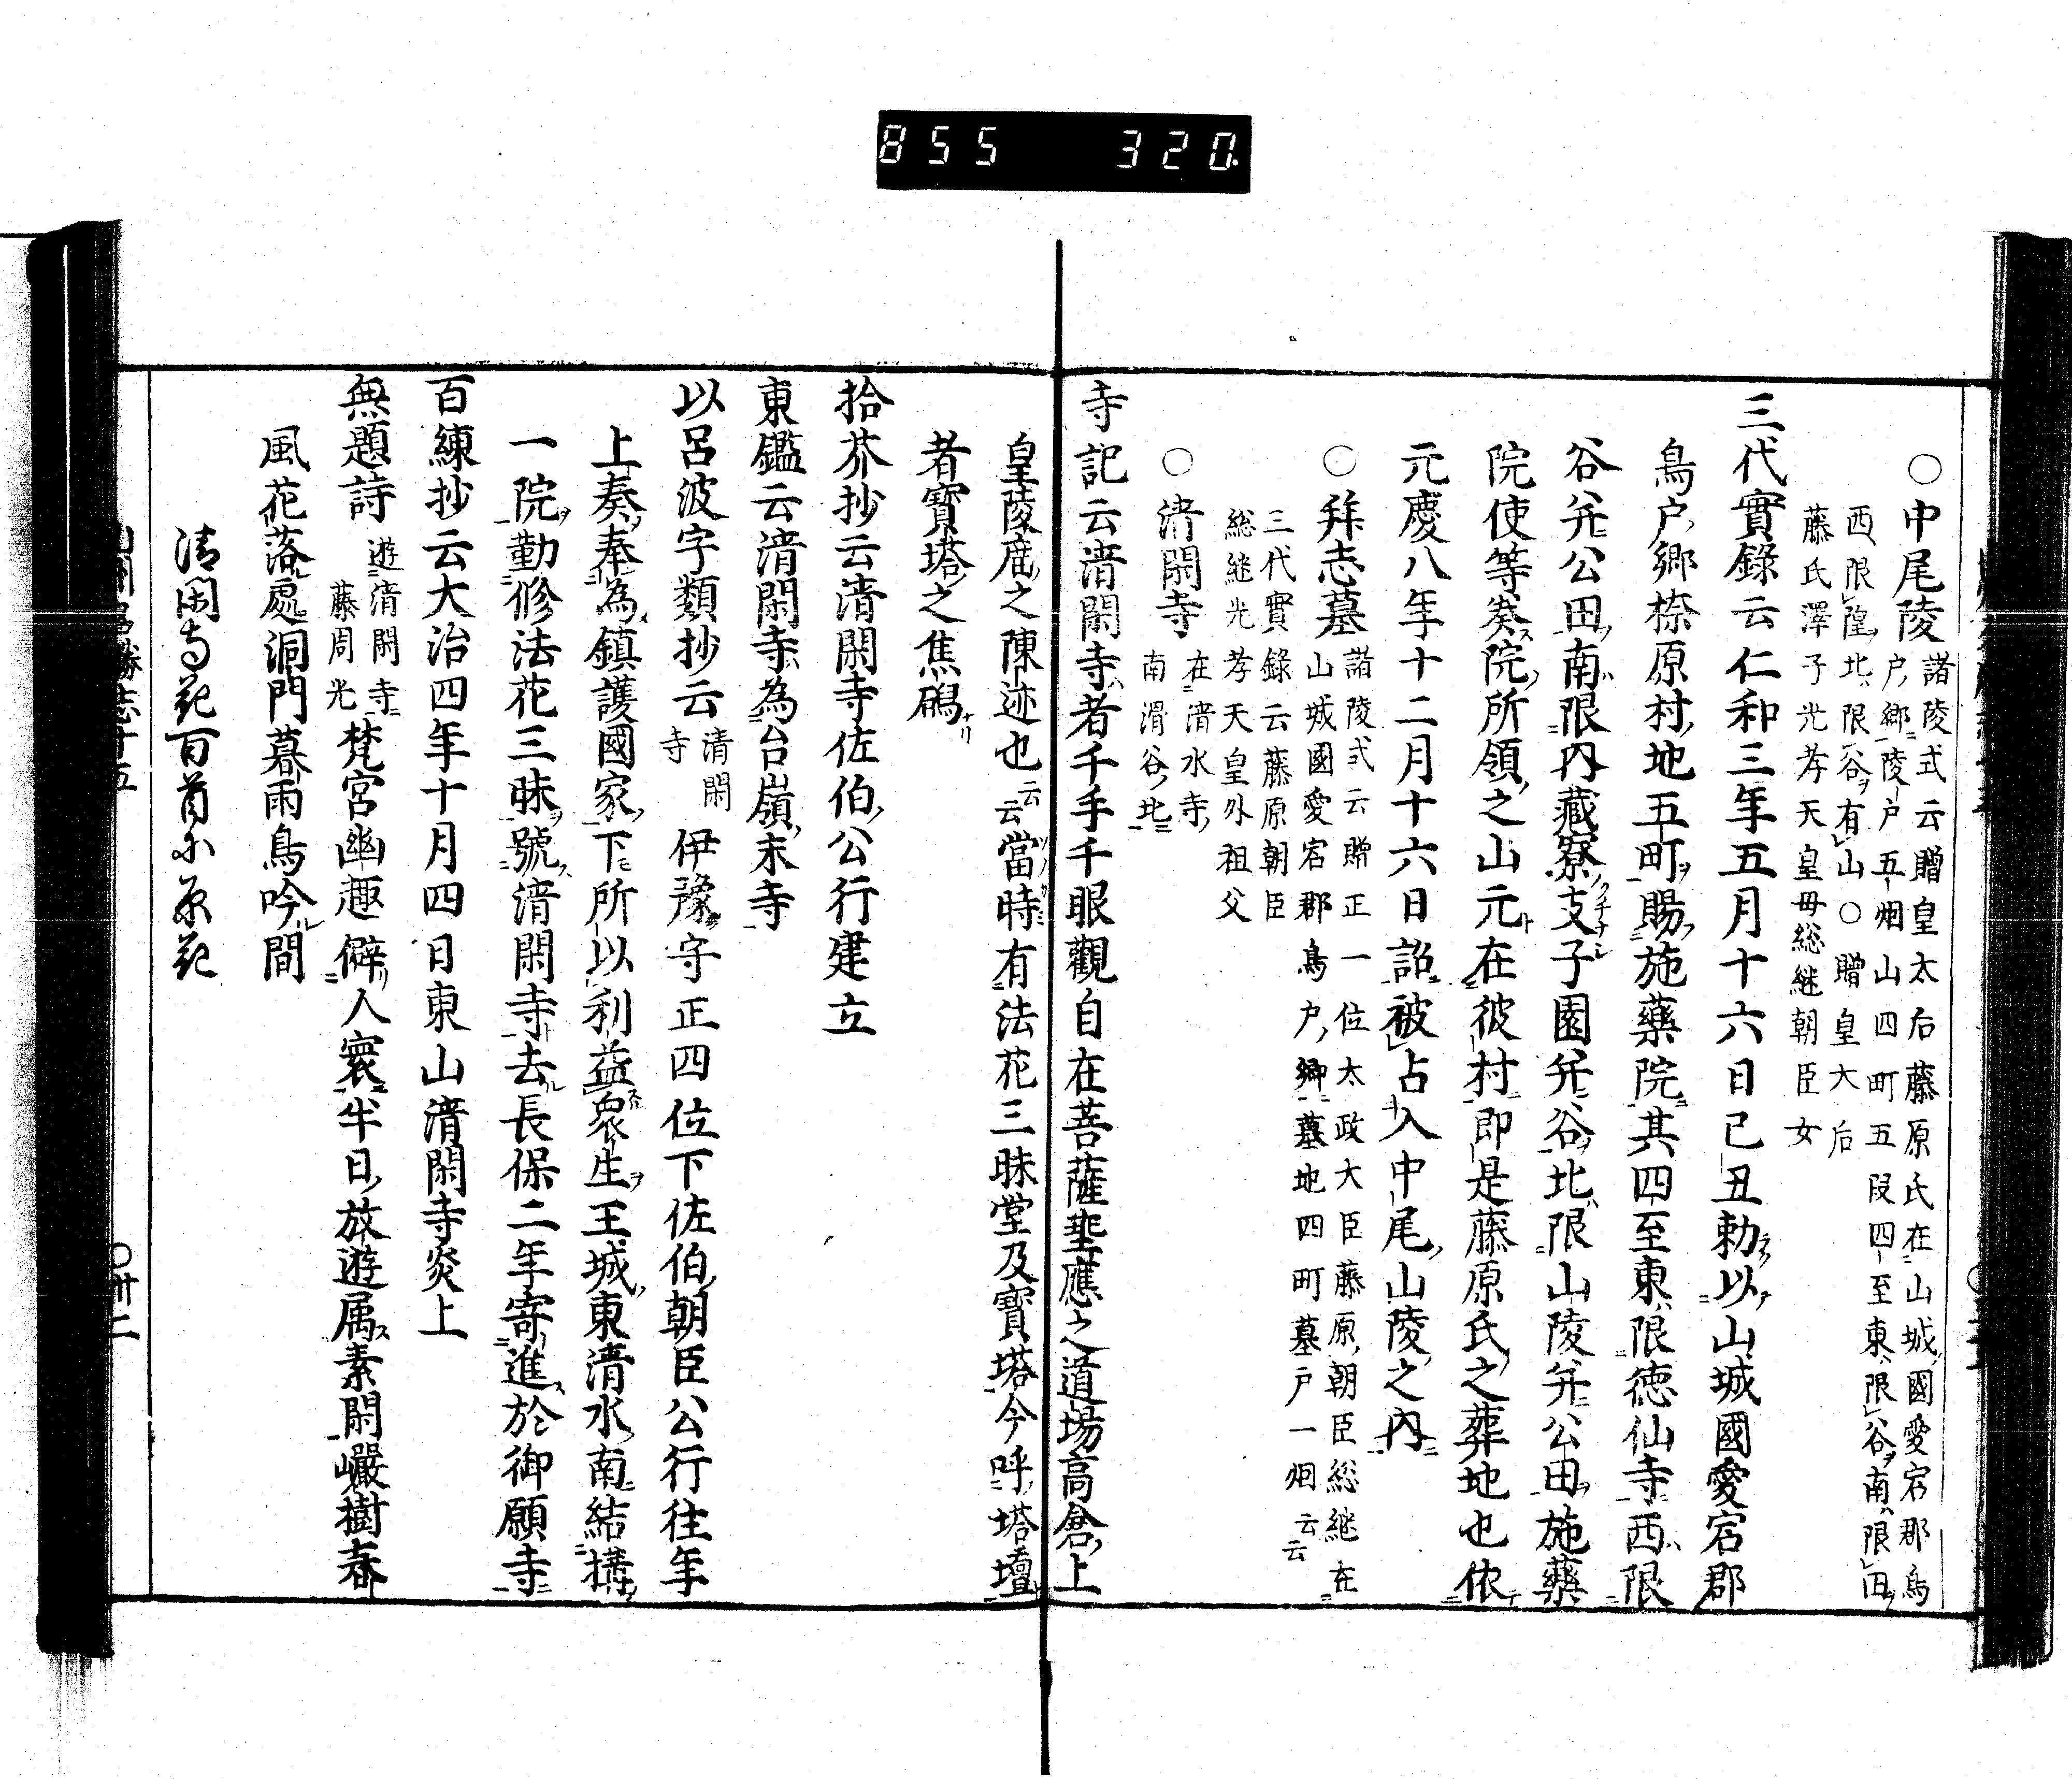 855 320.
○中尾陵
諸陵式云贈皇太后藤原氏在山城國愛宕郡鳥
戸郷陵戸五烟山四町五段四至東ハ限谷南ハ限田
西限隍北ハ限谷有山○贈皇大后
藤氏澤子光孝天皇母総継朝臣女
三代實錄云仁和三年五月十六日己丑勅以山城國愛宕郡
鳥戸郷㮈原村地五町賜施藥院其四至東限徳仙寺西限
谷并公田南限内藏寮支子園并谷北限山陵并公田施藥
院使等奏院所領之山元在彼村即是藤原氏之葬地也依
元慶八年十二月十六日詔被占入中尾山陵之内
○拜志墓
諸陵式云贈正一位太政大臣藤原朝臣総継在
山城國愛宕郡鳥戸郷墓地四町墓戸一烟云云
三代實錄云藤原朝臣
総継光孝天皇外祖父
○清閑寺
在清水寺
南滑谷北
寺記云清閑寺者千手千眼觀自在菩薩埀應之道場高倉上
皇陵庿之陳迹也云云當時有法花三昧堂及寶塔今呼塔壇
者寶塔之焦礎ナリ
拾芥抄云清閑寺佐伯公行建立
東鑑云清閑寺為台嶺末寺
以呂波字類抄云清閑寺 伊豫守正四位下佐伯朝臣公行往年
上奏奉為鎮護國家下モ所以利益衆生王城東清水南結搆
一院勤修法花三昧號清閑寺去長保二年寄進於御願寺
百練抄云大治四年十月四日東山清閑寺炎上
無題詩 遊清閑寺 藤周光 梵宮幽趣僻人寰半日放遊属素閑巖樹春
風花落處洞門暮雨鳥吟間
清閑寺花百首小原花
○卅二